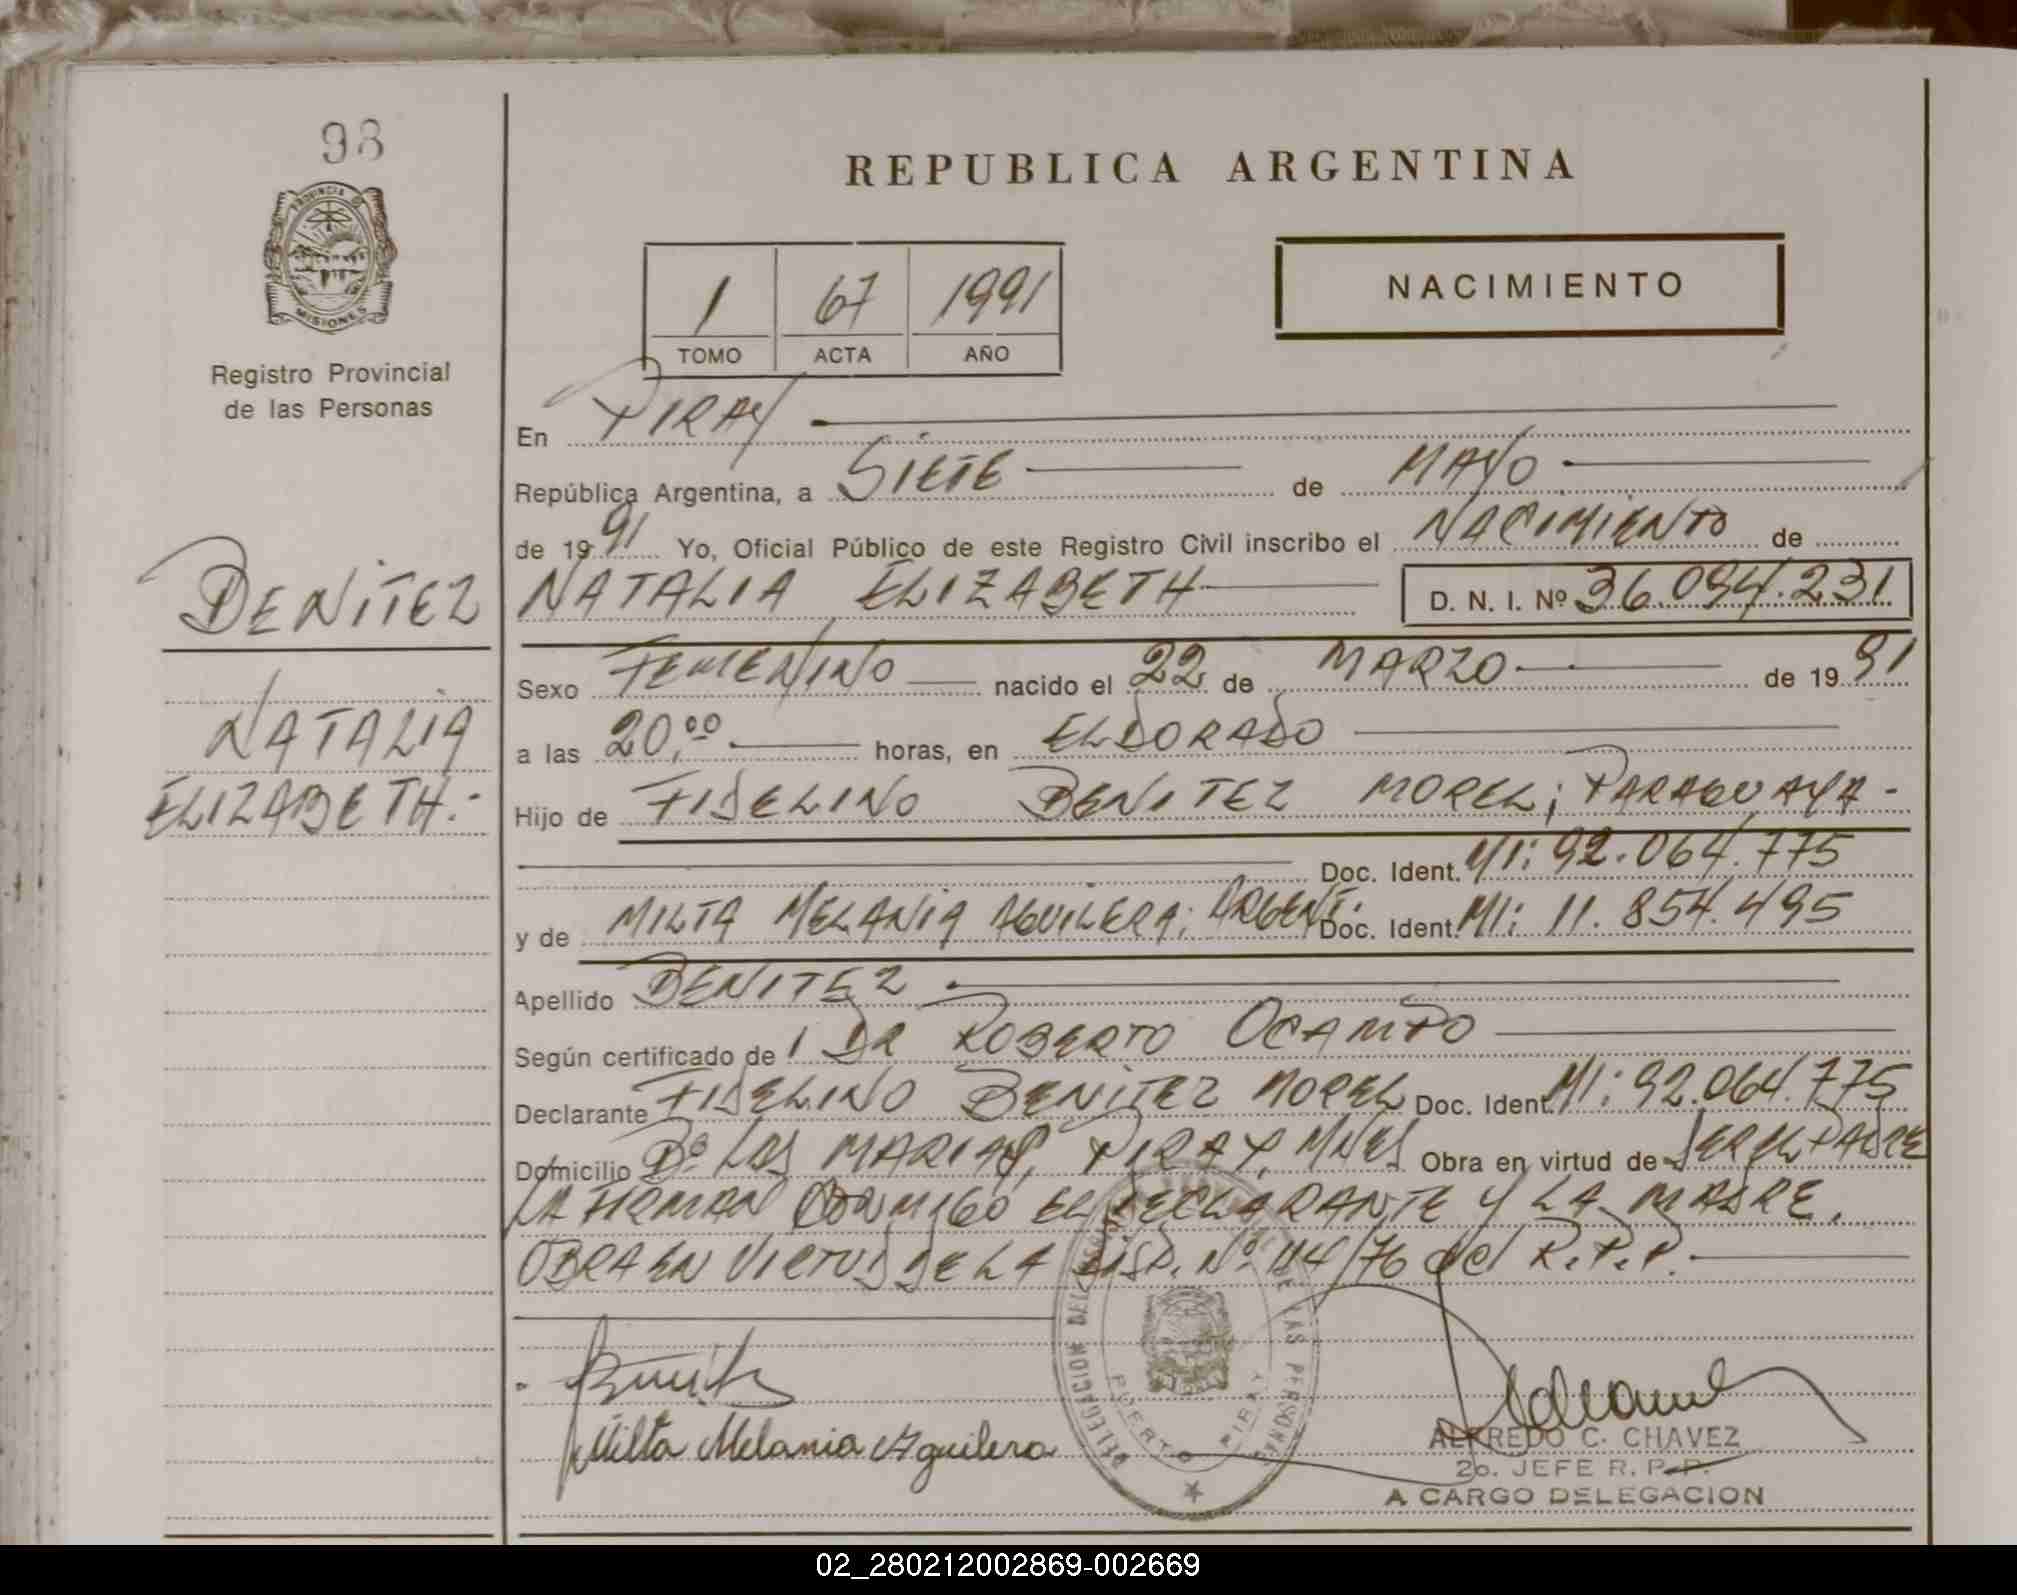 98
PROVINCIA DE
MISIONES
Registro Provincial
de las Personas
BENITEZ
NATALIA
ELIZABETH.-
REPUBLICA ARGENTINA
NACIMIENTO
1 67 1991
TOMO ACTA AÑO
En PIRAY
República Argentina, a SIETE de MAYO
de 1991 Yo, Oficial Público de este Registro Civil inscribo el NACIMIENTO de
NATALIA ELIZABETH D. N. I. Nº 36.094.231
Sexo FEMENINO nacido el 22 de MARZO de 1991
a las 20,00 horas, en ELDORADO
Hijo de FIDELINO BENITEZ MOREL; PARAGUAYA-
Doc. Ident. MI: 92.064.775
y de MILTA MELANIA AGUILERA; ARGENT. Doc. Ident. MI: 11.854.495
Apellido BENITEZ
Según certificado de DR ROBERTO OCAMPO
Declarante FIDELINO BENITEZ MOREL Doc. Ident. MI: 92.064.775
Domicilio Bº LAS MARIAS, PIRAY, MNES Obra en virtud de SER EL PADRE
FIRMAN CONMIGO EL DECLARANTE Y LA MADRE.
OBRA EN VIRTUD DE LA DISP. Nº 114/76 del R.P.P.
Milta Melania Aguilera
DELEGACION DEL REGISTRO PROVINCIAL DE LAS PERSONAS
PUERTO PIRAY
ALFREDO C. CHAVEZ
2o. JEFE R. P. P.
A CARGO DELEGACION
02_280212002869-002669